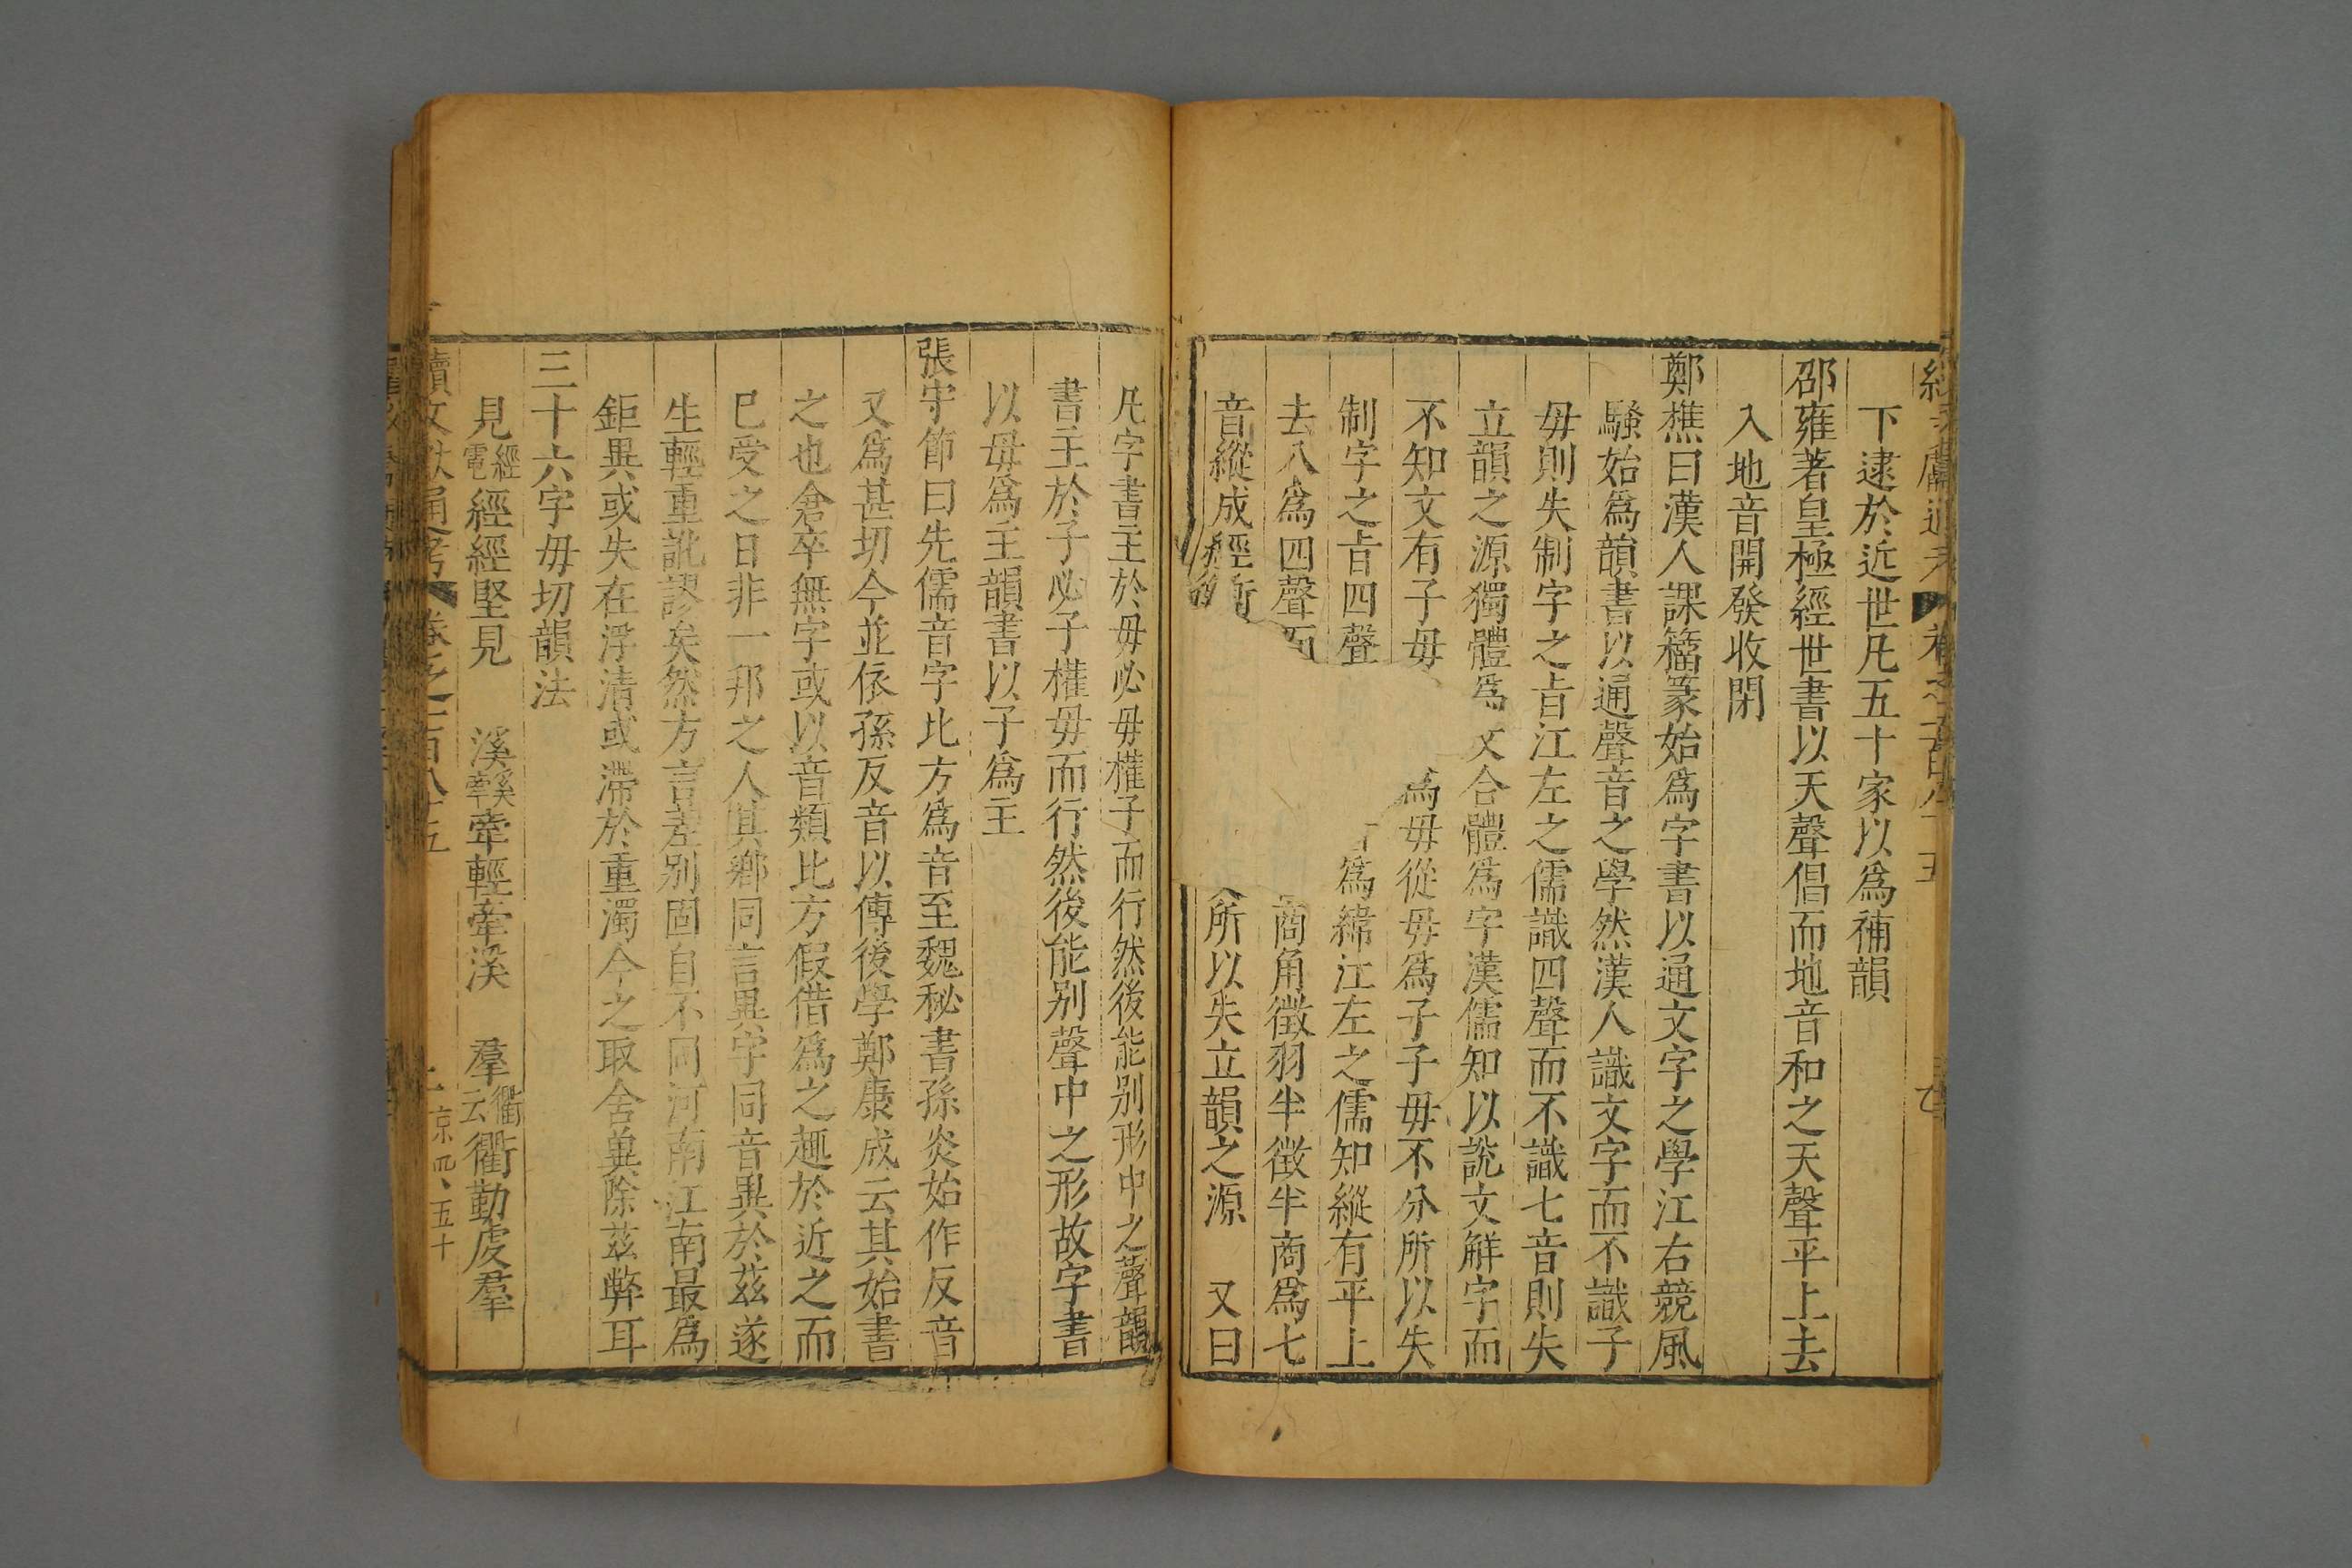 下逮於近世凡五十家以爲補韻
邵雍著皇極經世書以天聲倡而地音和之天聲平上去
入地音開發收閉
鄭樵曰漢人課籀篆始爲字書以通文字之學江右競風
騷始爲韻書以通聲音之學然漢人識文字而不識子
毋則失制字之旨江左之儒識四聲而不識七音則失
立韻之源獨體爲文合體爲字漢儒知以說文解字而
不知文有子毋爲毋從毋爲子子毋不分所以失
制字之旨四聲爲綿江左之儒知縱有平上
去入爲四聲商角徵羽半徵半商爲七
音縱成經所以失立韻之源　又曰
凡字書主於毋必毋權子而行然後能别形中之聲韻
書主於子必子權毋而行然後能别聲中之形故字書
以毋爲主韻書以子爲主
張守節曰先儒音字比方爲音至魏秘書孫炎始作反音
又爲甚切今並依孫反音以傳後學鄭康成云其始書
之也倉卒無字或以音類比方假借爲之趣於近之而
已受之日非一邦之人其鄉同言異字同音異於茲遂
生輕重訛謬矣然方言差别固自不同河南江南最爲
鉅異或失在浮清或滯於重濁今之取舍兾除兹弊耳
三十六字毋切韻法
見經電經經堅見　溪溪牽牽輕牽溪　羣衢云衢勤虔羣
續文獻通考　卷之一百八十五
京四、五十